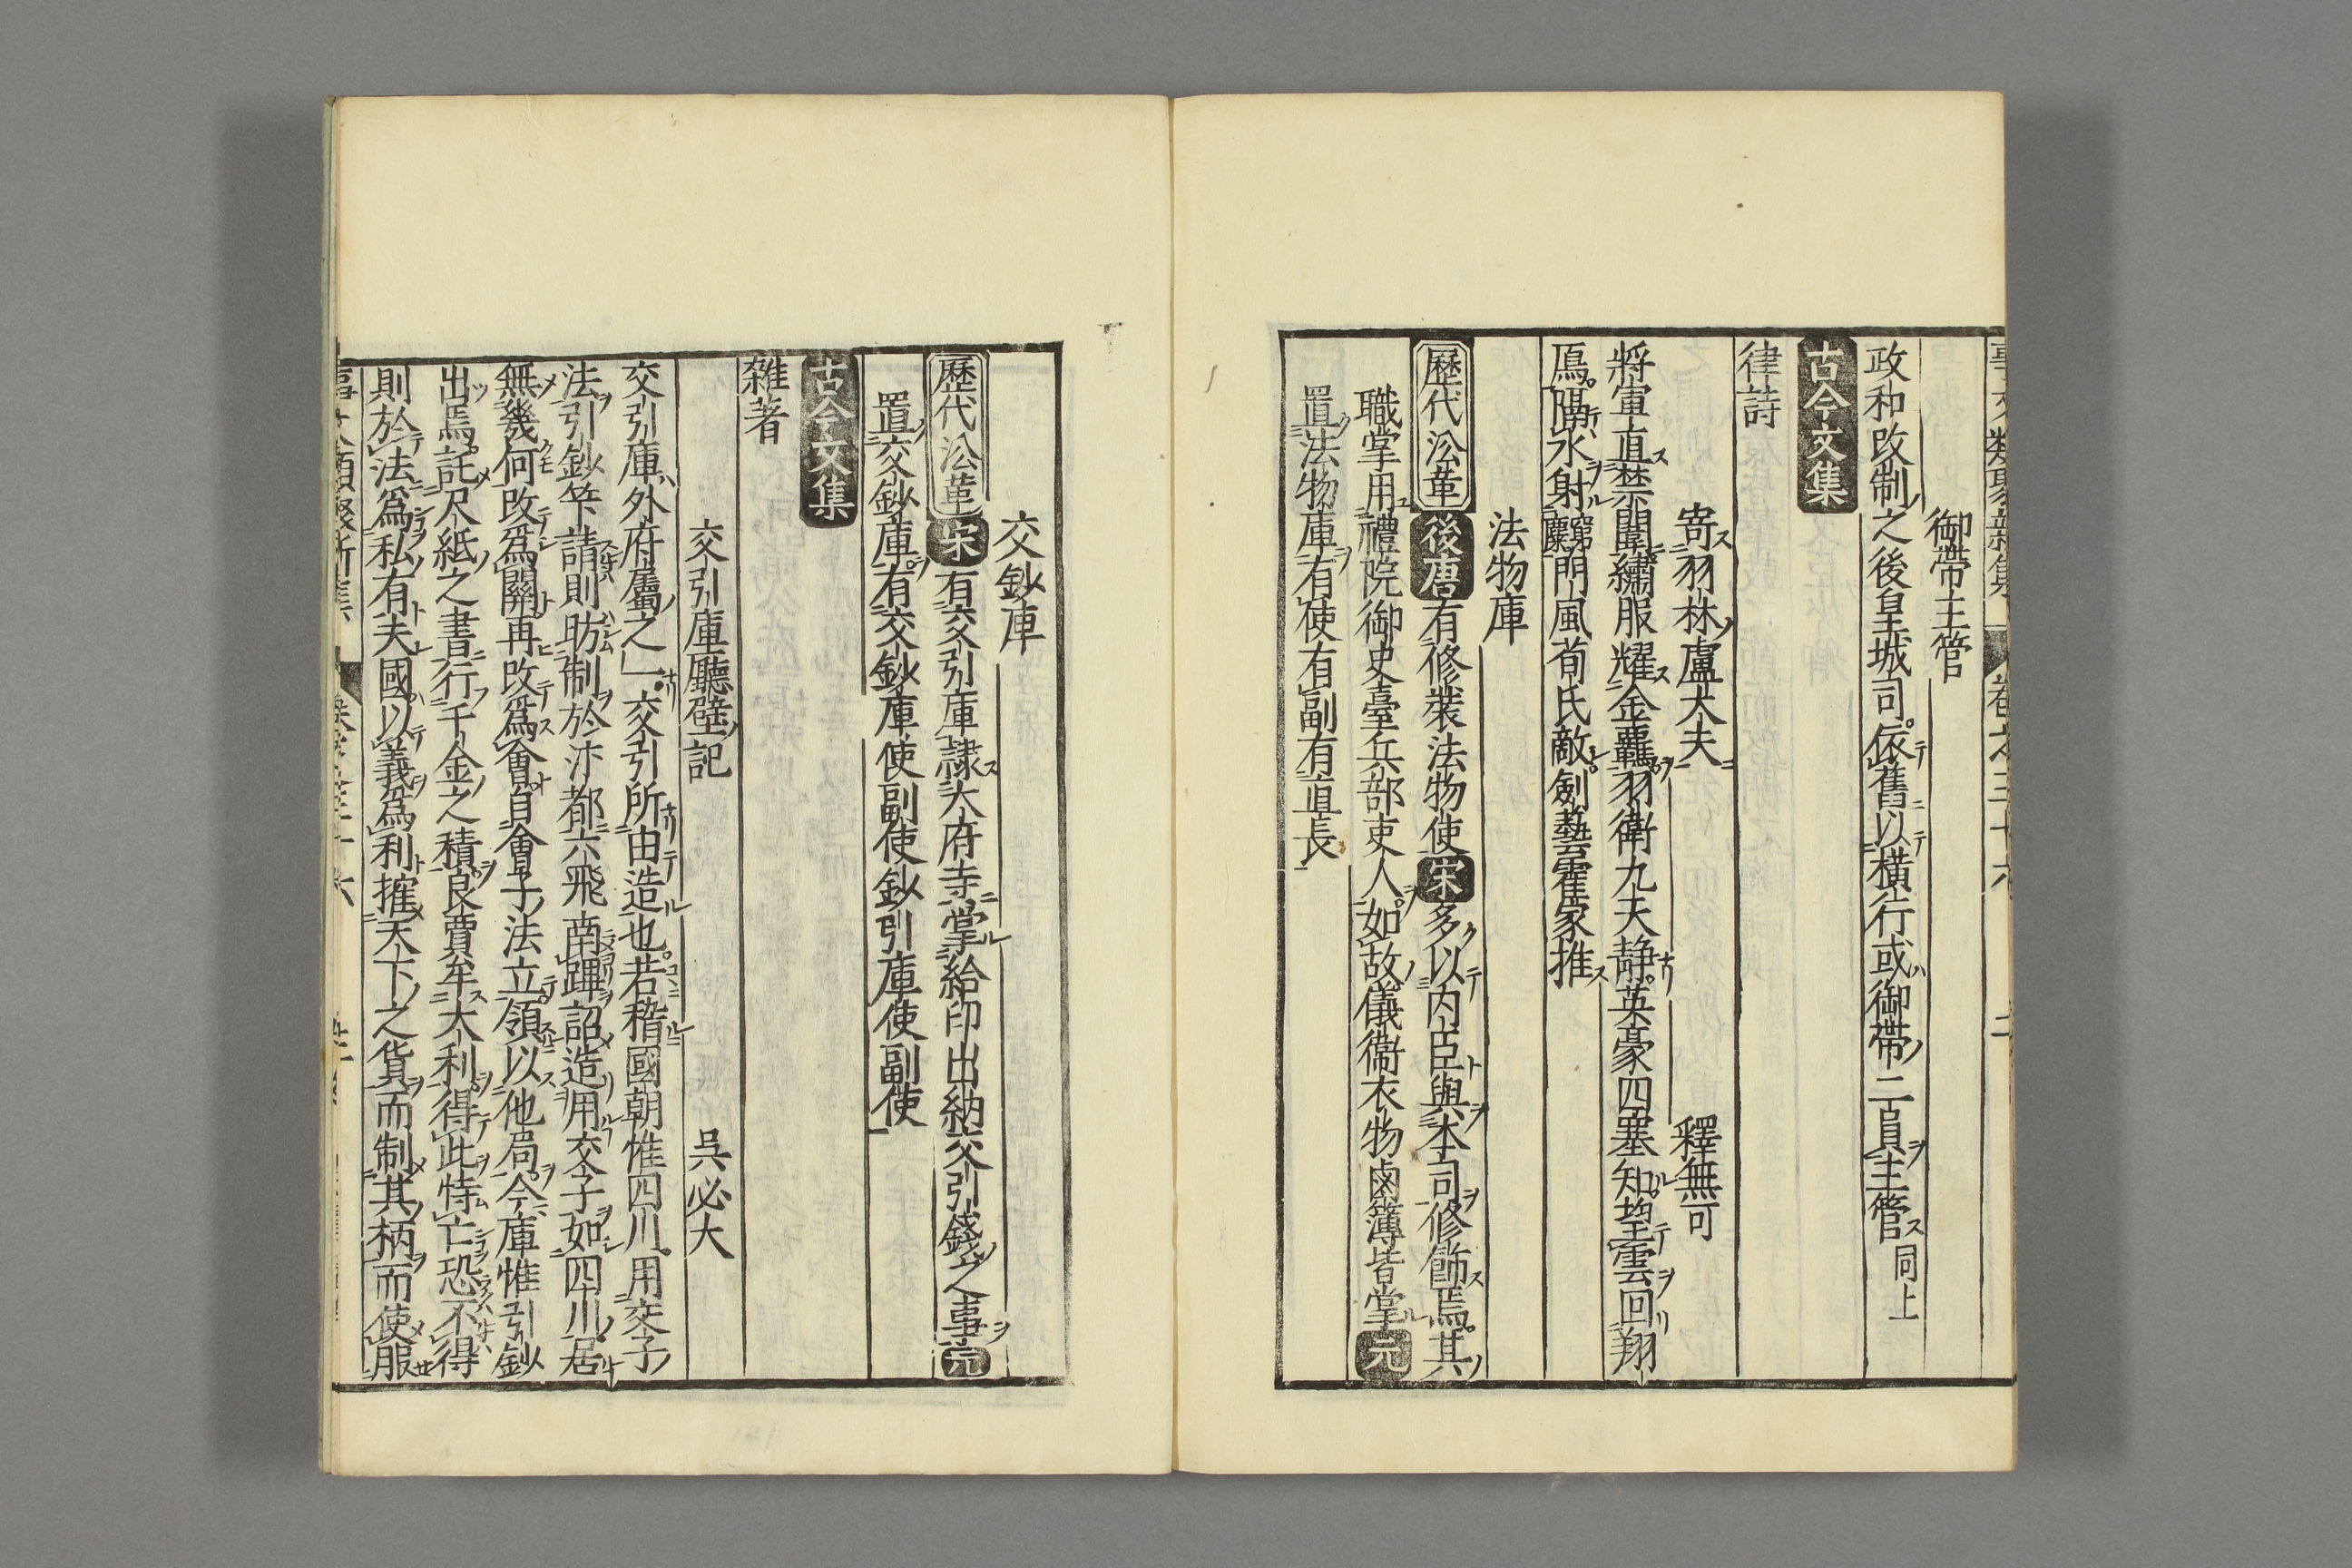 御帶主管
政和改制之後皇城司依舊以橫行或御帶二員主管同上
古今文集
律詩
寄羽林盧大夫 釋無可
將軍直禁闈繡服耀金羈羽衛九天静英豪四塞知望雲回翔
鴈隔水射門風荀氏敵劍藝霍家推
法物庫
歷代㳂革 後唐 有修裝法物使 宋 多以内臣與本司修飾焉其
職掌用禮院御史臺兵部吏人如故儀衞衣物鹵簿皆掌 元
置法物庫有使有副有直長
交鈔庫
歷代㳂革 宋 有交引庫隷大府寺掌給印出納交引錢之事 元
置交鈔庫有交鈔庫使副使鈔引庫使副使
古今文集
雜著
交引庫廳壁記 吳必大
交引庫外府屬之一交引所由造也若稽國朝惟四川用交子
法引鈔筞請則昉制於汴都六飛南蹕詔造用交子如四川居
無幾何改爲關再改爲會自會子法立領以他局今庫惟引鈔
出焉託尺紙之書行千金之積良賈牟大利得此恃亡恐不得
則於法爲私有夫國以義爲利搉天下之貨而制其柄而使服